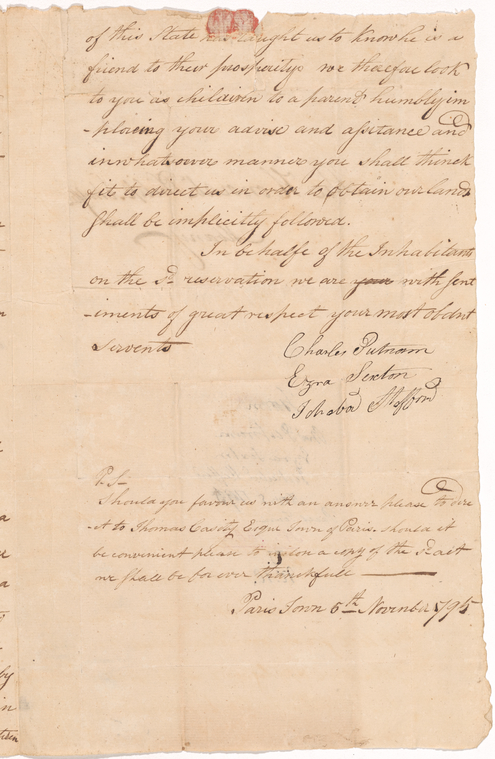 of this State has taught us to know he is a
friend to their prosperity we therefore look
to you as children to a parent humbly im
-ploreing your advise and assistance and
in whatsoever manner you shall thinck
fit to direct us in order to obtain our lands
shall be implicitly followed.
In behalfe of the Inhabitants
on the sd reservation we are your with sent
-iments of great respect your most obdnt
servents
Charles Putnam
Ezra Sexton
Ichabod Stafford
P.S-
Should you favour us with an answer please to dire
-ct to Thomas Casaty Esqr Town of Paris. should it
be convenient please to a copy of the
we shall be for ever thanckfull
Paris Town 6th November 1795
a
a
a
by
in